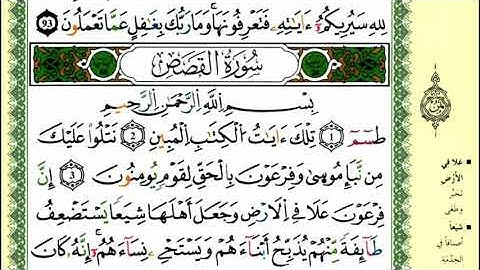 لِلهِ سَيُرِيكُمُۥٓ ءَايَٰتِهِۦ فَتَعْرِفُونَهَا وَمَا رَبُّكَ بِغَٰفِلٍ عَمَّا تَعْمَلُونَ 93
سُورَةُ القَصَصِ
بِسْمِ اِللَّهِ اِلرَّحْمَٰنِ اِلرَّحِيمِ
طَسِٓمِّٓ 1 تِلْكَ ءَايَٰتُ اُلْكِتَٰبِ اِلْمُبِينِ 2 نَتْلُواْ عَلَيْكَ
مِن نَّبَإِ مُوسَىٰ وَفِرْعَوْنَ بِالْحَقِّ لِقَوْمٍ يُومِنُونَ 3 إِنَّ
فِرْعَوْنَ عَلَا فِي اِلَارْضِ وَجَعَلَ أَهْلَهَا شِيَعاً يَسْتَضْعِفُ
طَآئِفَةً مِّنْهُمْ يُذَبِّحُ أَبْنَآءَهُمْ وَيَسْتَحْيِۦ نِسَآءَهُمُۥٓ إِنَّهُۥ كَانَ
عَلَا فِي
الأَرْضِ
تَجَبَّرَ
وطَغَى
شِيَعاً
أصنافاً في
الخدمة